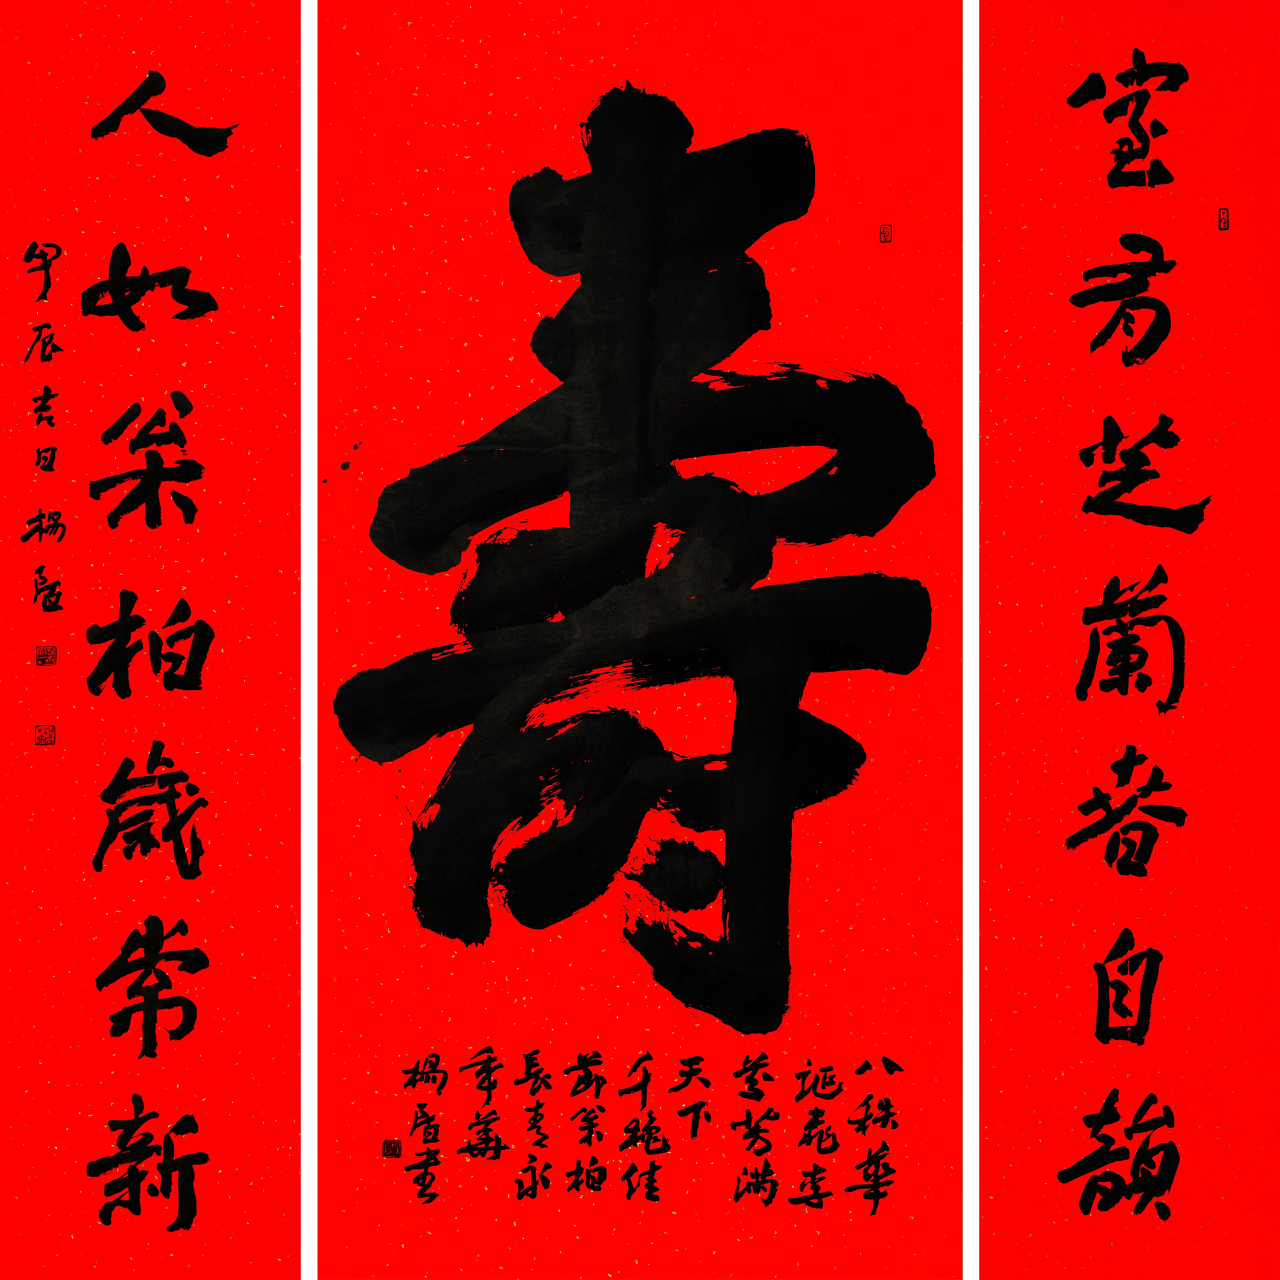 室有芝蘭春自韻
壽
八秩華
誕桃李
芬芳滿
天下
千穐佳
節枀柏
長青永
年華
楊書
人如枀柏歲常新
甲辰吉日楊